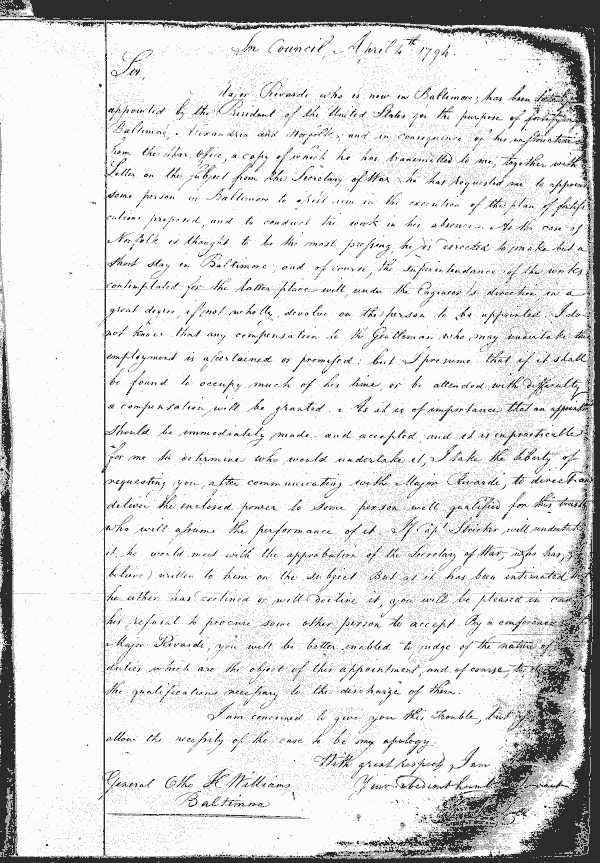 In Council, April 4th 1794.
Sir,
Major Rivardi, who is now in Baltimore, has been
appointed by the President of the United States for the purpose of fortifying
Baltimore, Alexandria and Norfolk; and in consequence of his instructions
from the War Office, a copy of which he has transmitted to me, together with
Letter on the subject from the Secretary of War he has requested me to appoint
some person in Baltimore to assist him in the execution of the plan of fortifi
cations proposed, and to conduct the work in his absence. As the case of
Norfolk is thought to be the most pressing, he is directed to make but a
short stay in Baltimore; and of course, the superintendance of the works
contemplated for the latter place will, under the Engineer's direction in a
great degree, if not wholly, devolve on the person to be appointed. I do
not know that any compensation to the Gentleman who may undertake this
employment is ascertained or promised: but I presume that if it shall
be found to occupy much of his time, or be attended with difficulty
a compensation will be granted. As it is of importance that an appointm
should be immediately made and accepted, and it is impracticable
for me to determine who would undertake it, I take the liberty of
requesting you, after communicating with Major Rivardi, to direct and
deliver the enclosed power to some person well qualified for this trust
who will assume the performance of it. If Capt. Stricker will undertake
it, he would meet with the approbation of the Secretary of War, who has, I
believe, written to him on the subject. But as it has been intimated
he either has declined or will decline it, you will be pleased in case
his refusal to procure some other person to accept. By a conference
Major Rivardi, you will be better enabled to judge of the nature of
duties which are the object of this appointment, and of course, to
the qualifications necessary to the discharge of them.
I am concerned to give you this trouble, but
allow the necessity of the case to be my apology.
With great respect, I am
General Otho H Williams Your obedient humble Servant
Baltimore